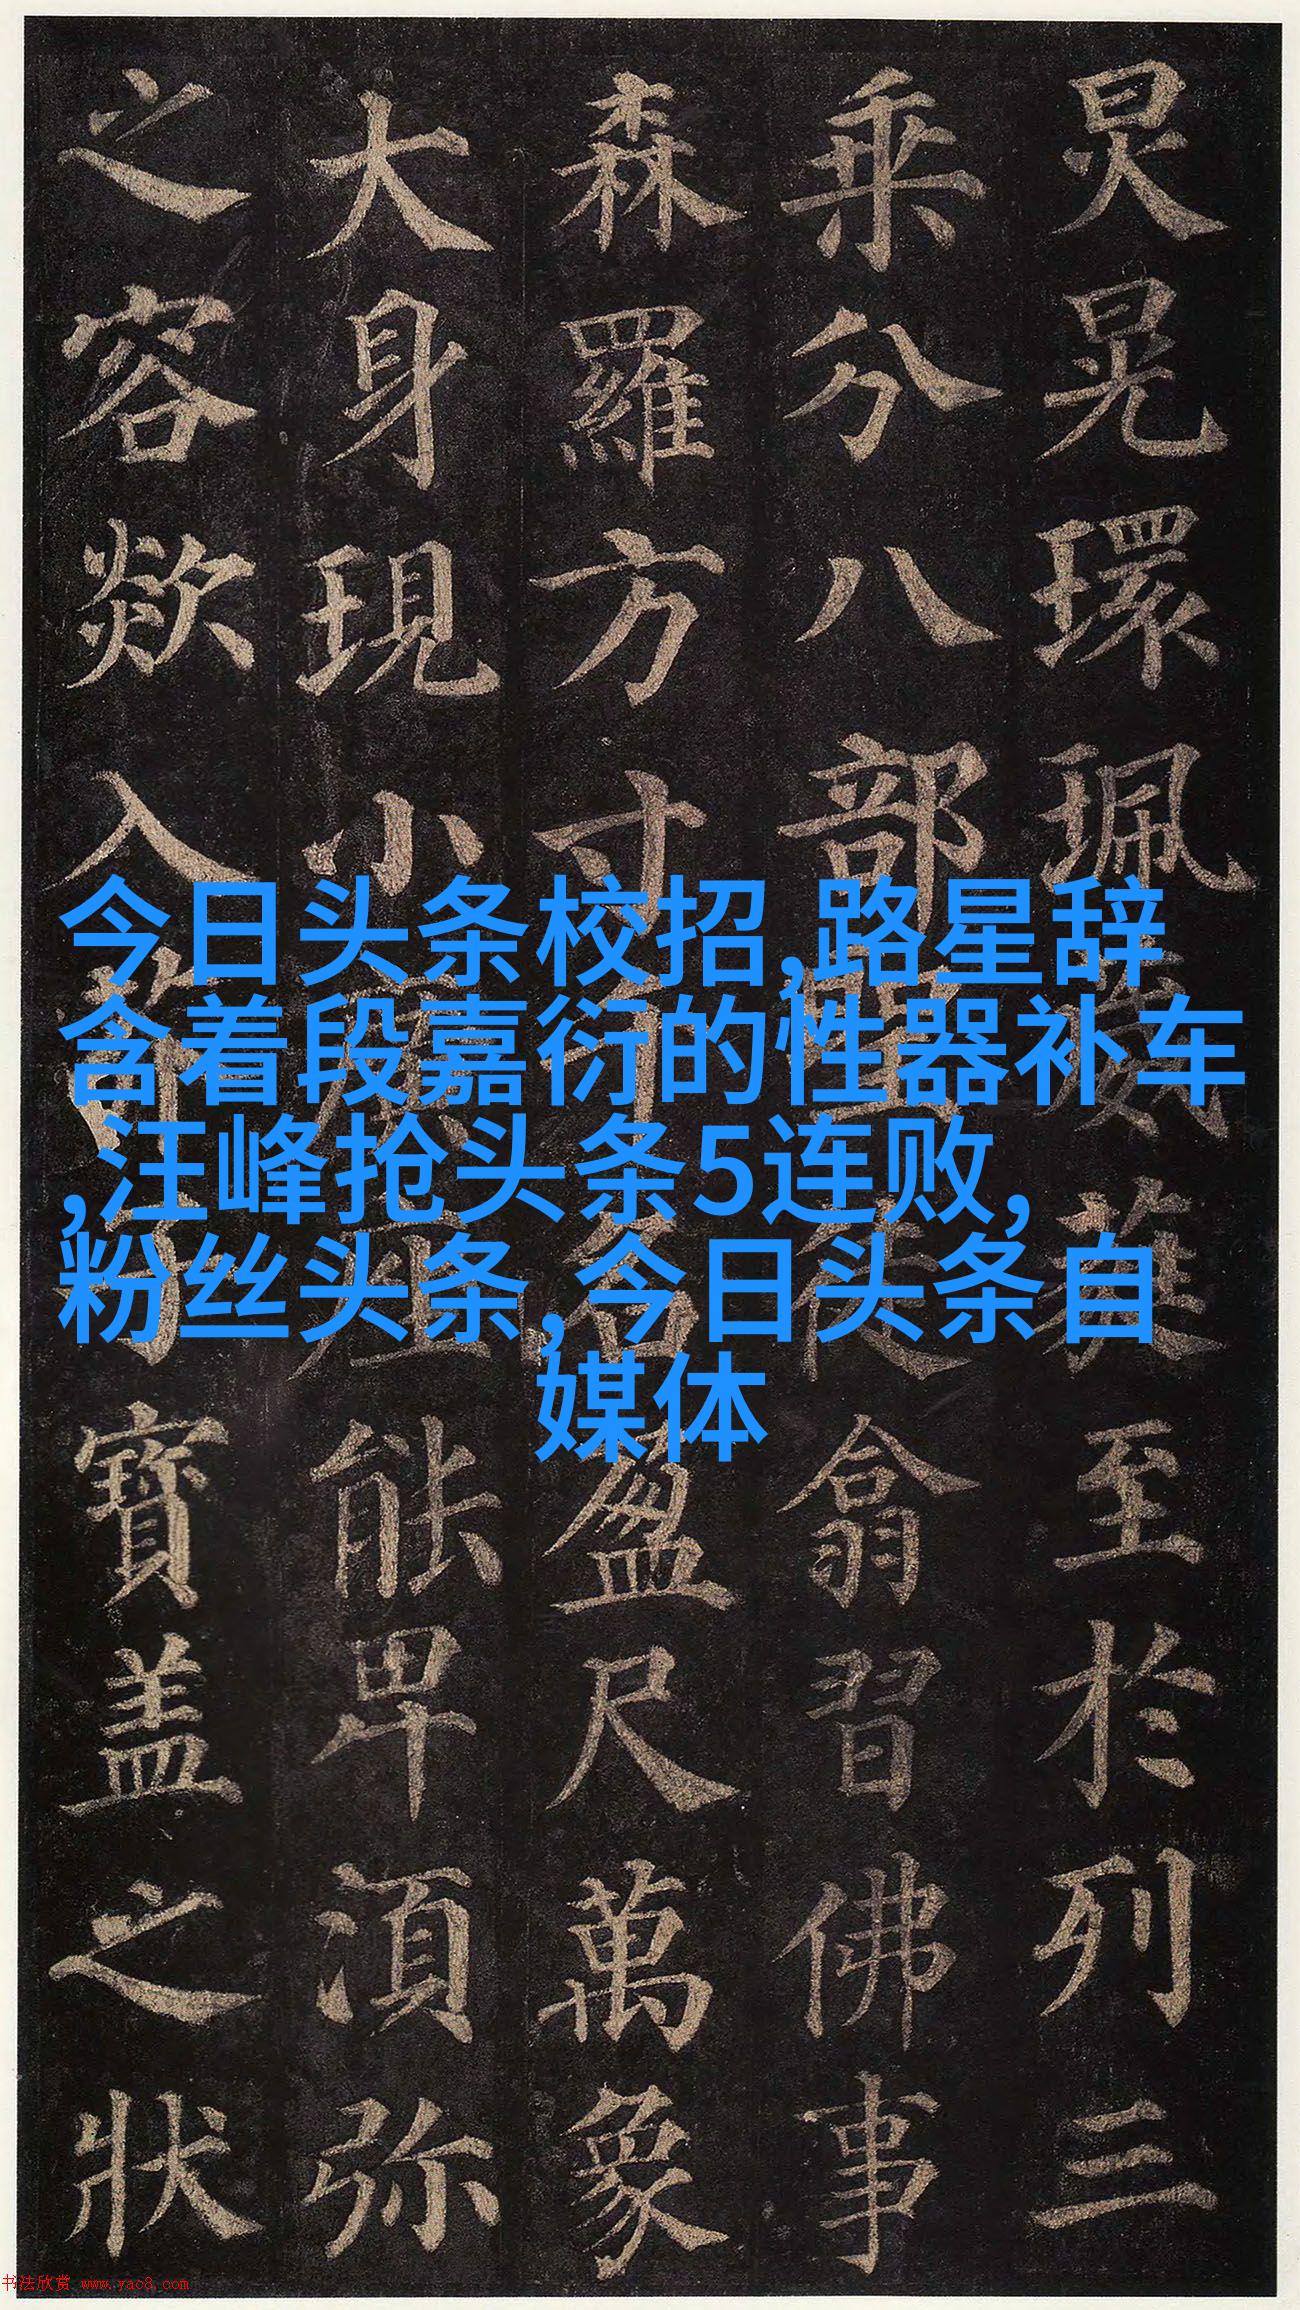 炅晃環珮葳蕤至於列三
乘分八部聖徒翕習佛事
森羅方寸千名盈尺萬象
大身現小廣座能卑須弥
之容欻入芥子寶盖之狀
今日头条校招,路星辞
含着段嘉衍的性器补车
,汪峰抢头条5连败,
粉丝头条,今日头条自
媒体
书法欣赏 www.yac8.com